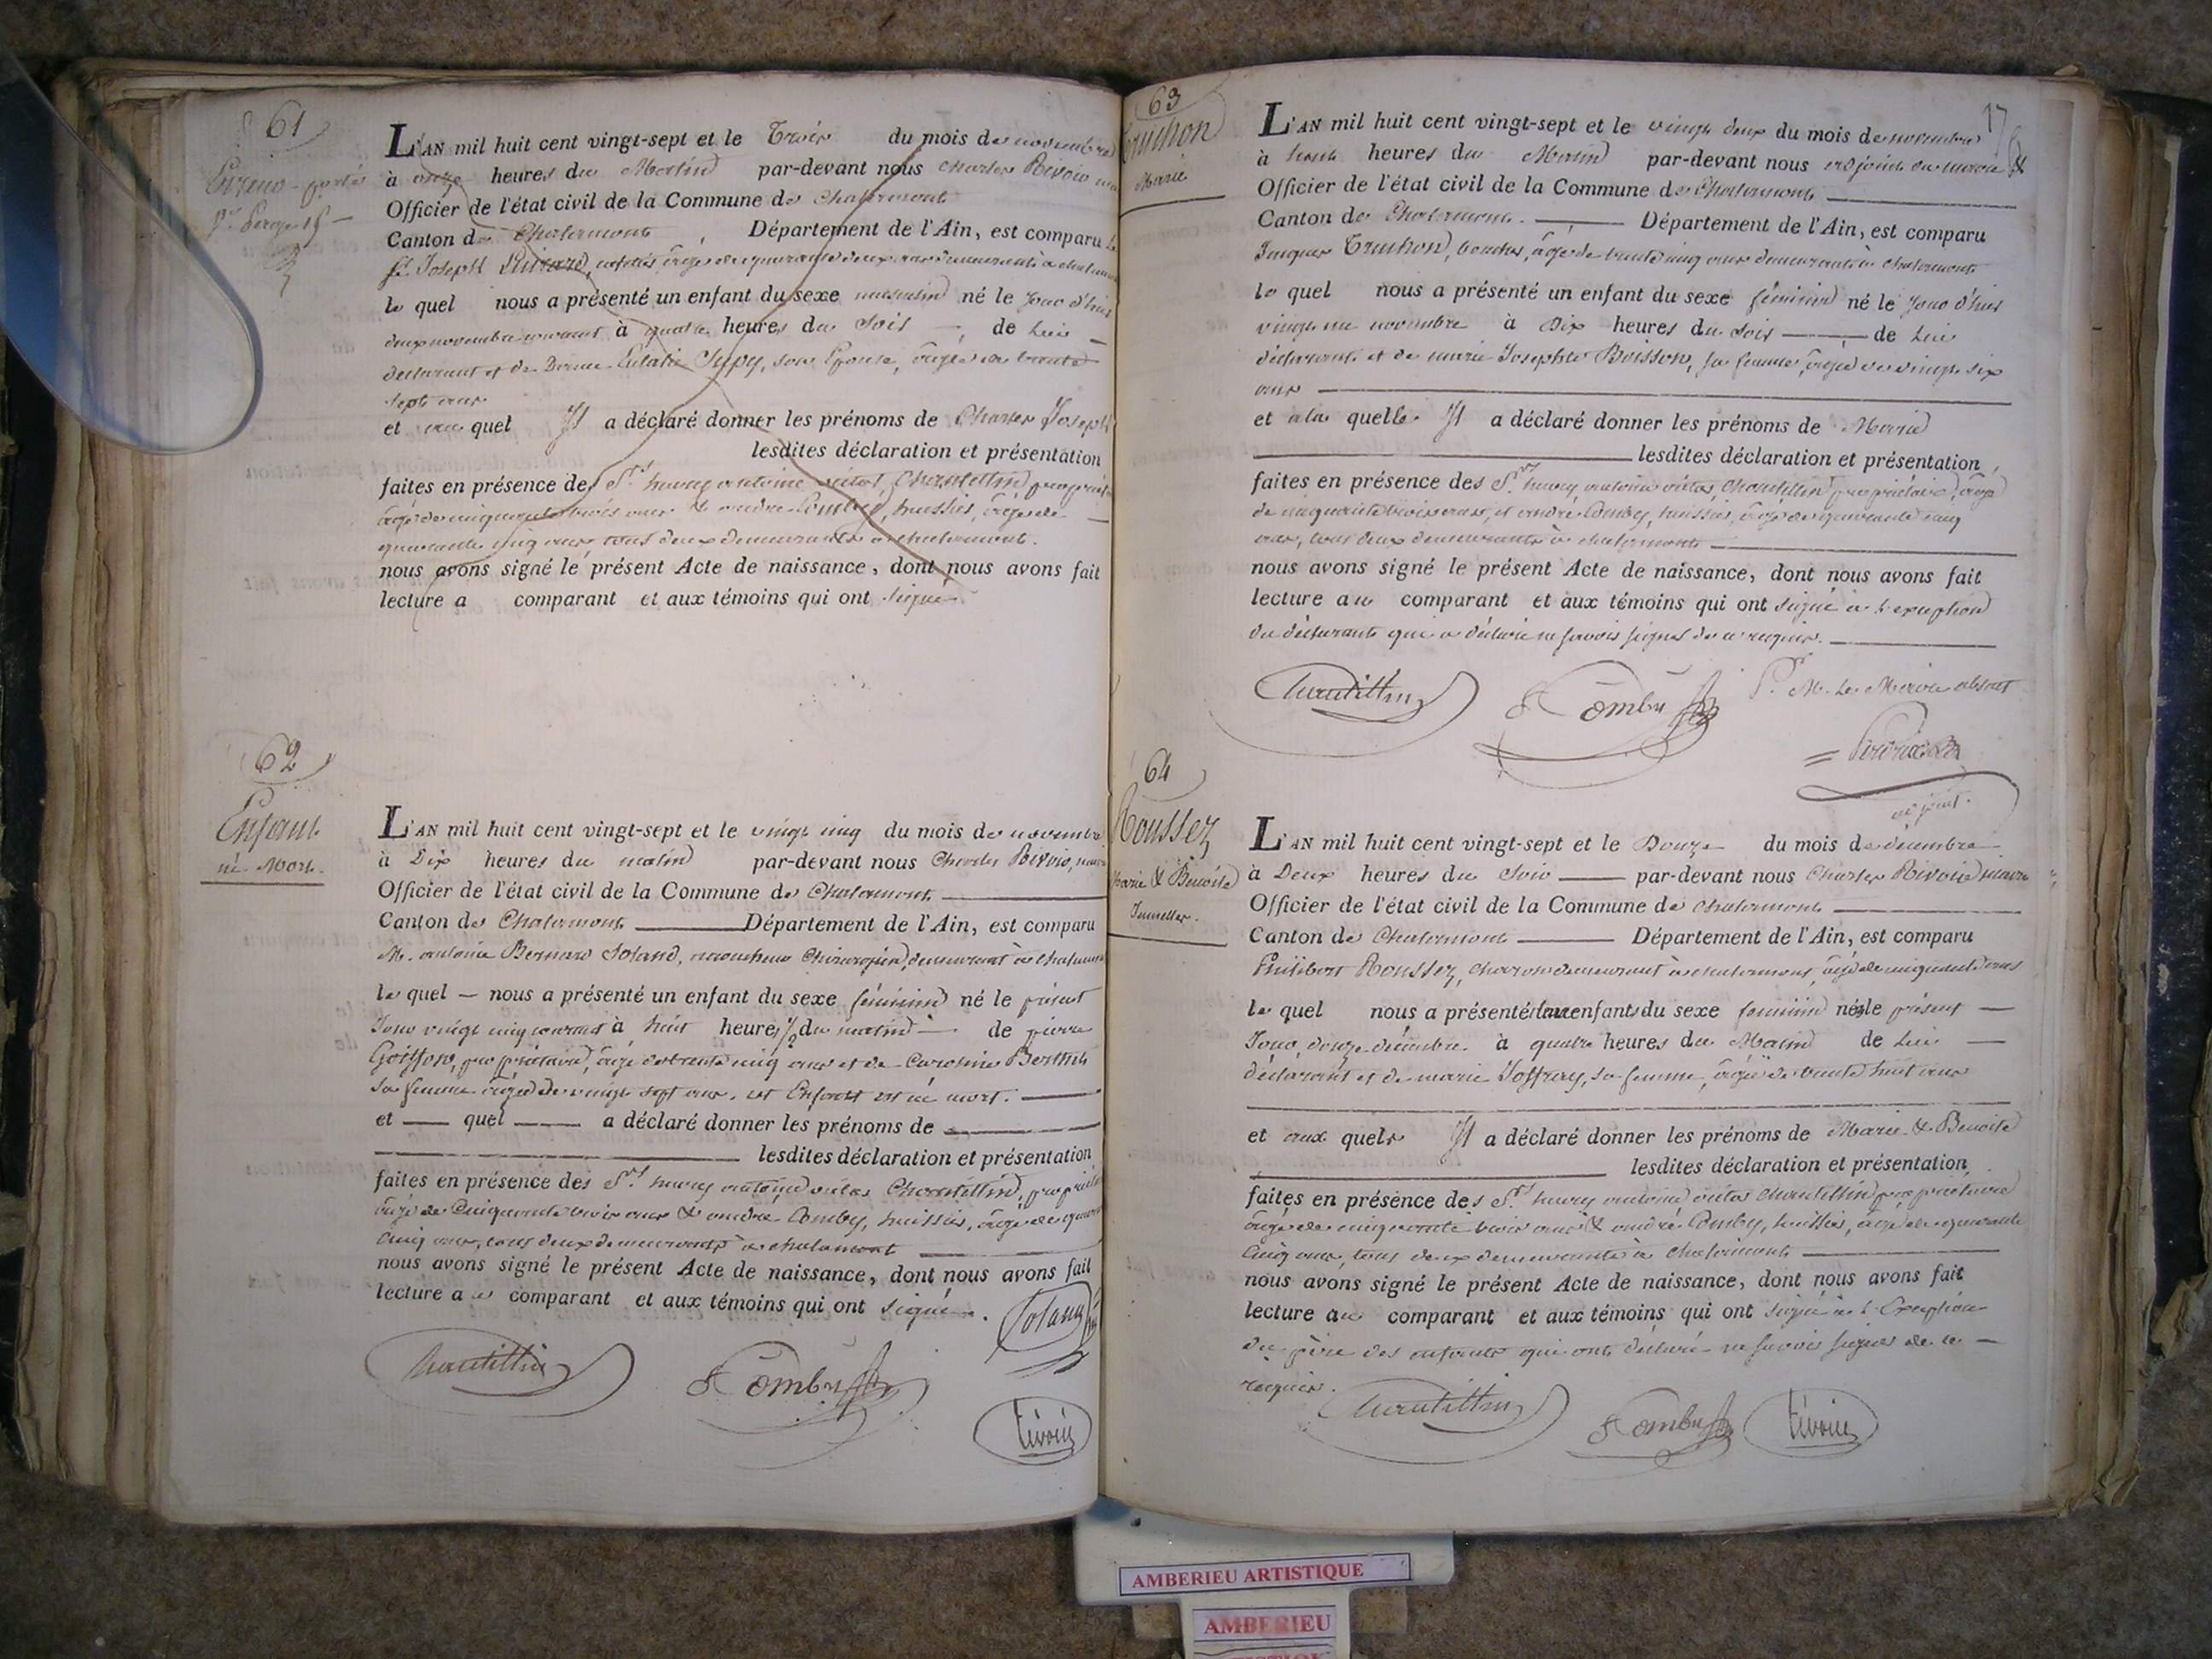 61
L'AN mil huit cent vingt-sept et le Trois du mois de novembre
à onze heures du Matin par-devant nous Charles Rivoire
Officier de l'état civil de la Commune de Chalamont
Canton de Chalamont, Département de l'Ain, est comparu le
Sr. Joseph âgé de quarante deux ans demeurant à chalamont
le quel nous a présenté un enfant du sexe masculin né le Jour d'hier
deux novembre courant à quatre heures du Soir, de Lui
déclarant et de Dame Eulalie son Epouse, âgée de trente
sept ans
et au quel Il a déclaré donner les prénoms de Charles Joseph
lesdites déclaration et présentation
faites en présence des Srs. henry antoine vital Chantellin propriétaire
âgé de cinquante trois ans & andré Comby, huissier, âgé de
quarante cinq ans tous deux demeurants à chalamont.
nous avons signé le présent Acte de naissance, dont nous avons fait
lecture a comparant et aux témoins qui ont signé
62
Enfant
né Mort.
L'AN mil huit cent vingt-sept et le vingt cinq du mois de novembre
à Dix heures du matin par-devant nous Charles Rivoire, maire
Officier de l'état civil de la Commune de Chalamont
Canton de Chalamont Département de l'Ain, est comparu
M. antoine Bernard Soland, accoucheur Chirurgien, demeurant à chalamont
le quel — nous a présenté un enfant du sexe féminin né le présent
Jour vingt cinq courant à huit heures 1/2 du matin — de pierre
Goiffon, propriétaire, âgé de trente cinq ans et de Caroline
sa femme âgée de vingt sept ans. cet Enfant est né mort.
et — quel — a déclaré donner les prénoms de —
lesdites déclaration et présentation
faites en présence des Srs. henry antoine vital Chantellin, propriétaire
âgé de Cinquante trois ans & andré Comby, huissier, âgé de quarante
Cinq ans, tous deux demeurants à chalamont
nous avons signé le présent Acte de naissance, dont nous avons fait
lecture au comparant et aux témoins qui ont signé.
Soland
Chantellin Comby Rivoire
17
63
Truchon
Marie
L'AN mil huit cent vingt-sept et le vingt deux du mois de novembre
à huit heures du Matin par-devant nous adjoint du maire &
Officier de l'état civil de la Commune de Chalamont
Canton de Chalamont. Département de l'Ain, est comparu
Jacques Truchon, boucher, âgé de trente cinq ans demeurant à chalamont
le quel nous a présenté un enfant du sexe féminin né le Jour d'hier
vingt un novembre à Dix heures du Soir — de Lui
déclarant et de marie Josephte Buisson, sa femme, âgée de vingt six
ans
et à la quelle Il a déclaré donner les prénoms de Marie
lesdites déclaration et présentation
faites en présence des Srs. henry antoine vital Chantellin propriétaire, âgé
de cinquante trois ans, et andré Comby, huissier, âgé de quarante cinq
ans, tous deux demeurants à chalamont
nous avons signé le présent Acte de naissance, dont nous avons fait
lecture au comparant et aux témoins qui ont signé à l'exception
du déclarant qui a déclaré ne savoir signer de ce requis.
Chantellin Comby Pr. M. Le Maire absent
adjoint.
64
Rousset
Marie & Benoite
Jumelles.
L'AN mil huit cent vingt-sept et le Douze du mois de décembre
à Deux heures du Soir — par-devant nous Charles Rivoire maire
Officier de l'état civil de la Commune de chalamont
Canton de Chalamont — Département de l'Ain, est comparu
Philibert Rousset, charron demeurant à chalamont, âgé de cinquante ans
le quel nous a présenté deux enfants du sexe féminin nés le présent —
Jour, douze décembre à quatre heures du Matin de Lui —
déclarant et de marie Joffray, sa femme, âgée de trente huit ans
et aux quels Il a déclaré donner les prénoms de Marie & Benoite
lesdites déclaration et présentation
faites en présence des Srs henry antoine vital Chantellin propriétaire
âgé de cinquante trois ans & andré Comby, huissier, âgé de quarante
Cinq ans, tous deux demeurants à Chalamont
nous avons signé le présent Acte de naissance, dont nous avons fait
lecture au comparant et aux témoins qui ont signé à l'Exception
du père des enfants qui ont déclaré ne savoir signer de ce —
requis.
Chantellin Comby Rivoire
AMBERIEU ARTISTIQUE
AMBERIEU